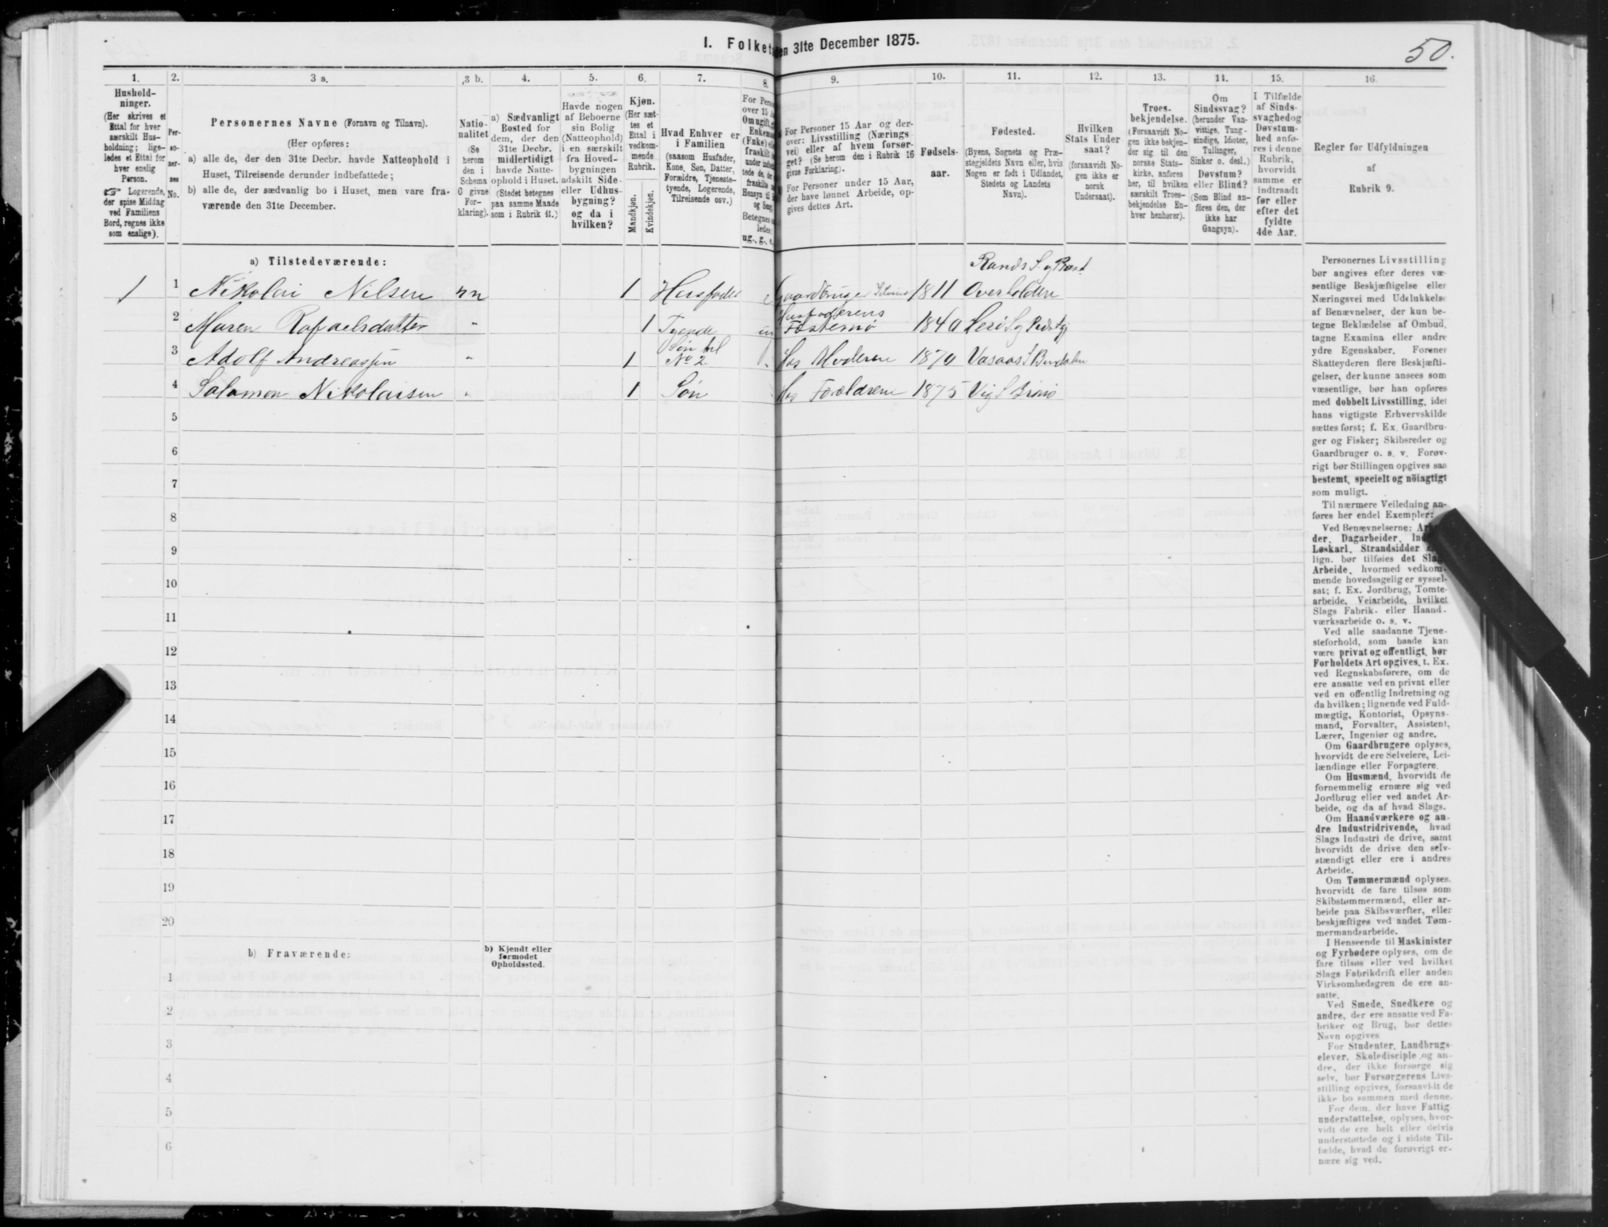 I. Folket en 31te December 1875.
50.
1. 2. 3 a. 3 b. 4. 5. 6. 7. 8. 9. 10. 11. 12. 13. 14. 15. 16.
Hushold-
ninger.
(Her skrives et
Ettal for hver
særskilt Hus-
holdning; lige-
ledes et Ettal for
hver enslig
Person.
☞ Logerende,
der spise Middag
ved Familiens
Bord, regnes ikke
som enslige).
Per-
so-
ner-
nes
No.
Personernes Navne (Fornavn og Tilnavn).
(Her opføres:
a) alle de, der den 31te Decbr. havde Natteophold i
Huset, Tilreisende derunder indbefattede;
b) alle de, der sædvanlig bo i Huset, men vare fra-
værende den 31te December.
Natio-
nalitet
(Se
herom
den i
Schema
O givne
For-
klaring).
a) Sædvanligt
Bosted for
dem, der den
31te Decbr.
midlertidigt
havde Natte-
ophold i Huset.
(Stedet betegnes
paa samme Maade
som i Rubrik 11.)
Havde nogen
af Beboerne
sin Bolig
(Natteophold)
i en særskilt
fra Hoved-
bygningen
adskilt Side-
eller Udhus-
bygning?
og da i
hvilken?
Kjøn.
(Her sæt-
tes et
Ettal i
vedkom-
mende
Rubrik.
Mandkjøn.
Kvindekjøn.
Hvad Enhver er
i Familien
(saasom Husfader,
Kone, Søn, Datter,
Forældre, Tjeneste-
tyende, Logerende,
Tilreisende osv.)
For Pers
over 15
Om ugift,
Enkem
(Enke) el
fraskilt
Betegnes
ledes:
ug., g., e.
For Personer 15 Aar og der-
over: Livsstilling (Nærings-
vei) eller af hvem forsør-
get? (Se herom den i Rubrik 16
givne Forklaring).
For Personer under 15 Aar,
der have lønnet Arbeide, op-
gives dettes Art.
Fødsels-
aar.
Fødested.
(Byens, Sognets og Præ-
stegjeldets Navn eller, hvis
Nogen er født i Udlandet,
Stedets og Landets
Navn).
Hvilken
Stats Under
saat?
(forsaavidt No-
gen ikke er
norsk
Undersaat).
Troes-
bekjendelse.
(Forsaavidt No-
gen ikke bekjen-
der sig til den
norske Stats-
kirke, anføres
her, til hvilken
særskilt Troes-
bekjendelse En-
hver henhører).
Om
Sindssvag?
(herunder Van-
vittige, Tung-
sindige, Idioter,
Tullinger,
Sinker o. desl.)
Døvstum?
eller Blind?
(Som Blind an-
føres den, der
ikke har
Gangsyn).
I Tilfælde
af Sinds-
svaghed og
Døvstum-
hed anfø-
res i denne
Rubrik,
hvorvidt
samme er
indtraadt
før eller
efter det
fyldte
4de Aar.
Regler for Udfyldningen
af
Rubrik 9.
a) Tilstedeværende:
1 1 Nikolai Nilsen nn 1 Husfader Gaardbruger 1811 Overholden
2 Maren Rafaelsdatter " 1 Tyende Husfaderens 1840
3 Adolf Andreassen " 1 Søn til No 2 Hos Moderen
4 Salomon Nikolaisen " 1 Søn Hos Forældrene 1875
5
6
7
8
9
10
11
12
13
14
15
16
17
18
19
20
b) Fraværende:
b) Kjendt eller
formodet
Opholdssted.
1
2
3
4
5
6
Personernes Livsstilling
bør angives efter deres væ-
sentlige Beskjæftigelse eller
Næringsvei med Udelukkelse
af Benævnelser, der kun be-
tegne Beklædelse af Ombud,
tagne Examina eller andre
ydre Egenskaber. Forener
Skatteyderen flere Beskjæfti-
gelser, der kunne ansees som
væsentlige, bør han opføres
med dobbelt Livsstilling, idet
hans vigtigste Erhvervskilde
sættes først; f. Ex. Gaardbru-
ger og Fisker; Skibsreder og
Gaardbruger o. s. v. Forøv-
rigt bør Stillingen opgives saa
bestemt, specielt og nöiagtigt
som muligt.
Til nærmere Veiledning an-
føres her endel Exempler:
Ved Benævnelserne:
der, Dagarbeider,
Løskarl, Strandsidder
lign. bør tilføies det Slag
Arbeide, hvormed vedkom-
mende hovedsagelig er syssel-
sat; f. Ex. Jordbrug, Tomte-
arbeide, Veiarbeide, hvilket
Slags Fabrik- eller Haand-
værksarbeide o. s. v.
Ved alle saadanne Tjene-
steforhold, som baade kan
være privat og offentligt, bør
Forholdets Art opgives, t. Ex.
ved Regnskabsførere, om de
ere ansatte ved en privat eller
ved en offentlig Indretning og
da hvilken; lignende ved Fuld-
mægtig, Kontorist, Opsyns-
mand, Forvalter, Assistent,
Lærer, Ingeniør og andre.
Om Gaardbrugere oplyses,
hvorvidt de ere Selveiere, Lei-
lændinge eller Forpagtere.
Om Husmænd, hvorvidt de
fornemmelig ernære sig ved
Jordbrug eller ved andet Ar-
beide, og da af hvad Slags.
Om Haandværkere og an-
dre Industridrivende, hvad
Slags Industri de drive, samt
hvorvidt de drive den selv-
stændigt eller ere i andres
Arbeide.
Om Tømmermænd oplyses,
hvorvidt de fare tilsøs som
Skibstømmermænd, eller ar-
beide paa Skibsværfter, eller
beskjæftiges ved andet Tøm-
mermandsarbeide.
I Henseende til Maskinister
og Fyrbødere oplyses, om de
fare tilsøs eller ved hvilket
Slags Fabrikdrift eller anden
Virksomhedsgren de ere an-
satte.
Ved Smede, Snedkere og
andre, der ere ansatte ved Fa-
briker og Brug, bør dettes
Navn opgives
For Studenter, Landbrugs-
elever, Skoledisciple og an-
dre, der ikke forsørge sig
selv, bør Forsørgerens Livs-
stilling opgives, forsaavidt de
ikke bo sammen med denne.
For dem, der have Fattig-
understøttelse, oplyses, hvor-
vidt de ere helt eller delvis
understøttede og i sidste Til-
fælde, hvad de forøvrigt er-
nære sig ved.